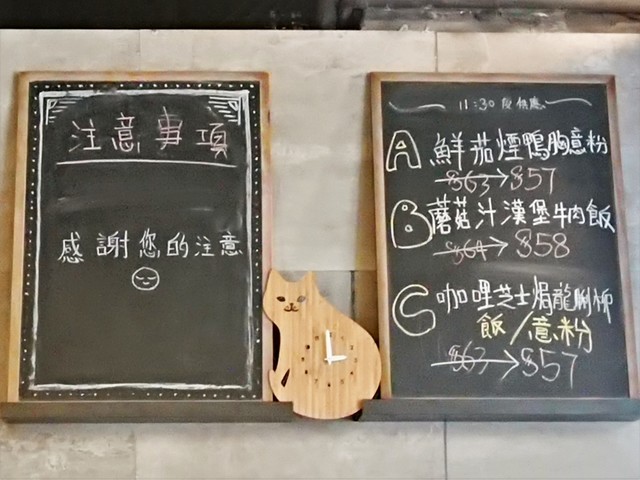 注意事項
感謝您的注意
11:30後供應
A 鮮茄煙鴨胸意粉
$63→$57
B 蘑菇汁漢堡牛肉飯
$64→$58
C 咖哩芝士焗龍脷柳
飯/意粉
$63→$57